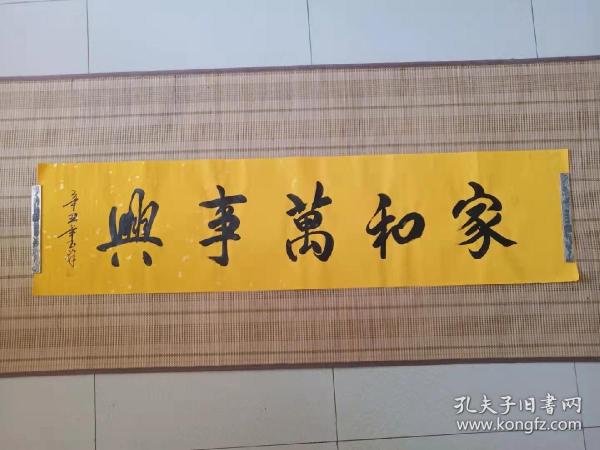 家和萬事興
辛丑年
孔夫子旧书网
www.kongfz.com